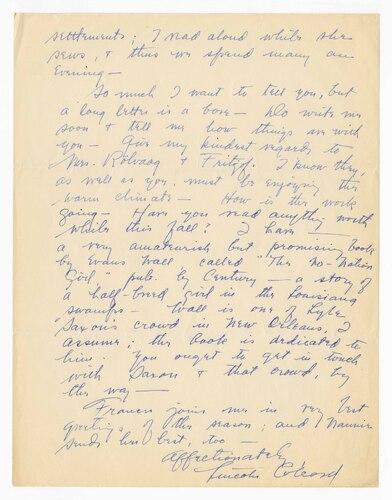 settlements; I read aloud while she
sews, & thus we spend many an
evening —
So much I want to tell you, but
a long letter is a bore — Do write me
soon & tell me how things are with
you — Give my kindest regards to
Mrs. Rölvaag & Fritzof. I know they,
as well as you, must be enjoying the
warm climate — How is the work
going — Have you read anything worth
while this fall? I have —
a very amateurish but promising book
by Evans Wall called "The No-Nation
Girl," pub. by Century — a story of
a half-breed girl in the Louisiana
swamps — Wall is one of Lyle
Saxon's crowd in New Orleans, I
assume; the book is dedicated to
him. You ought to get in touch
with Saxon & that crowd, by
the way —
Frances joins me in very best
greetings of the season; and
sends her best, too —
Affectionately,
Lincoln Colcord